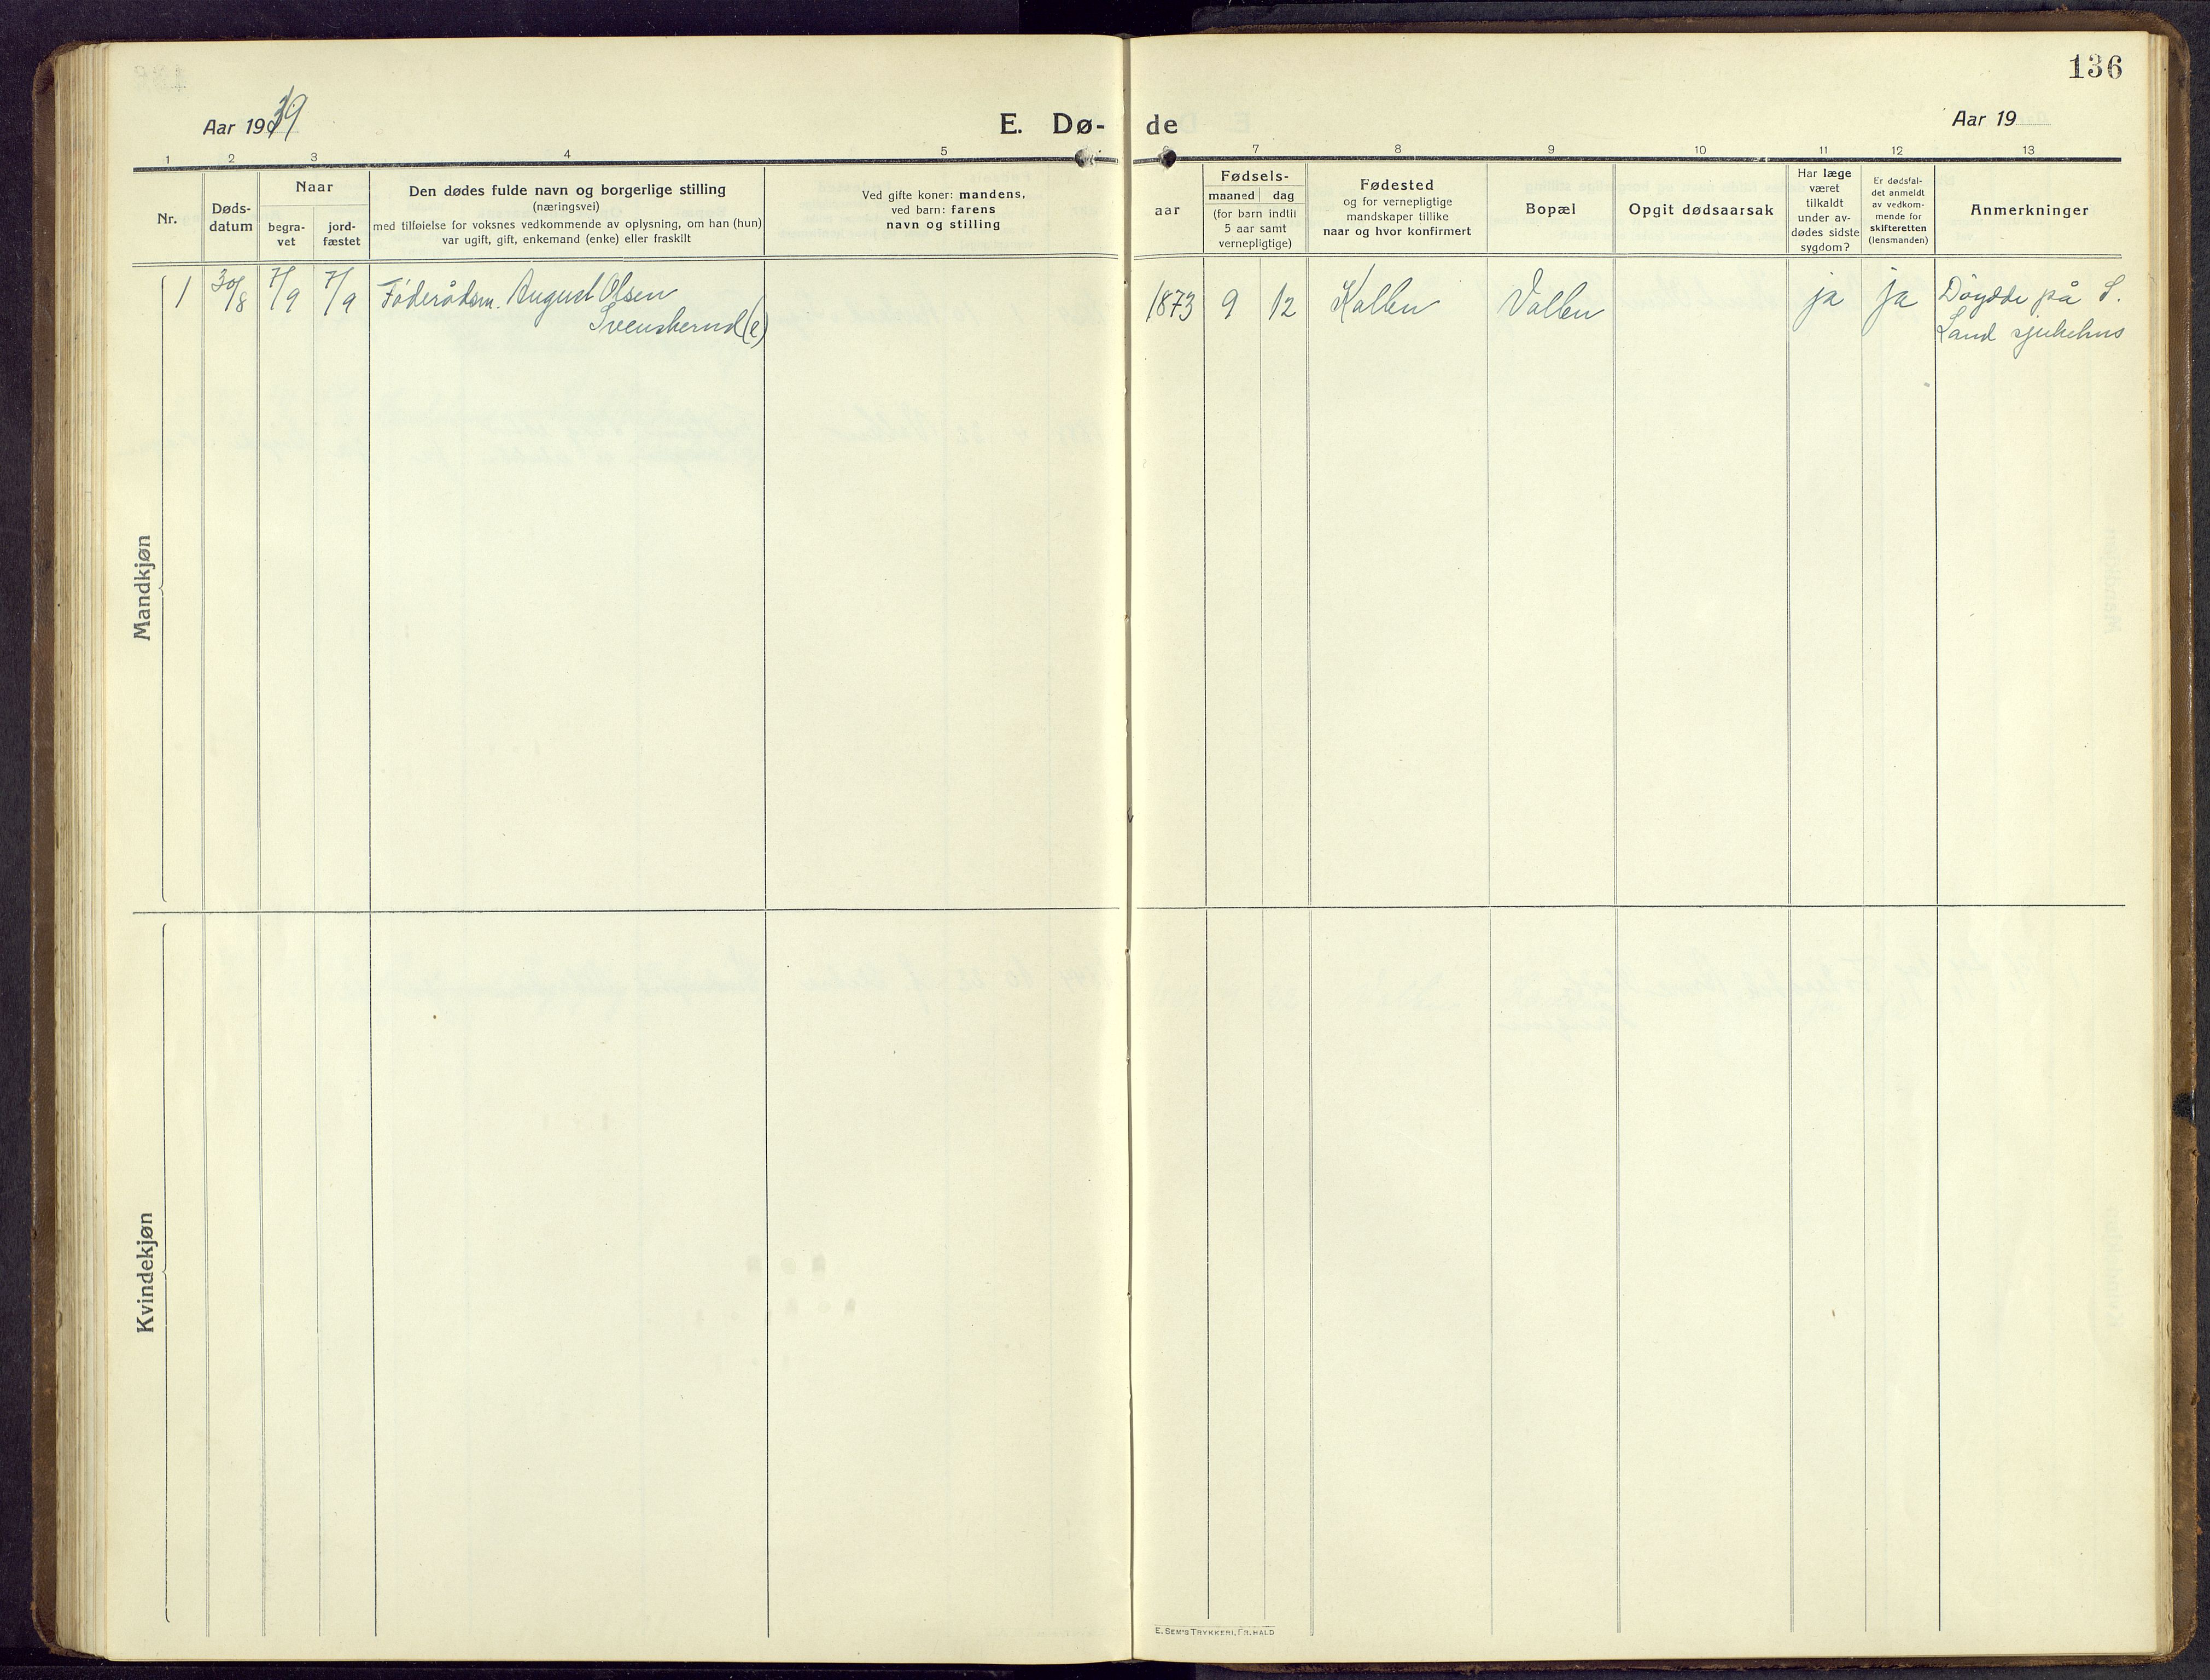 136
Aar 1939
E. Dø-
de
Aar 19
1 2 3 4 5 6 7 8 9 10 11 12 13
Nr.
Døds-
datum
Naar
begra-
vet
jord-
fæstet
Den dødes fulde navn og borgerlige stilling
(næringsvei)
med tilføielse for voksnes vedkommende av oplysning, om han (hun)
var ugift, gift, enkemand (enke) eller fraskilt
Ved gifte koner: mandens,
ved barn: farens
navn og stilling
aar
Fødsels-
maaned dag
(for barn indtil
5 aar samt
vernepligtige)
Fødested
og for vernepligtige
mandskaper tillike
naar og hvor konfirmert
Bopæl
Opgit dødsaarsak
Har læge
været
tilkaldt
under av-
dødes sidste
sygdom?
Er dødsfal-
det anmeldt
av vedkom-
mende for
skifteretten
(lensmanden)
Anmerkninger
Mandkjøn
1 30/8 7/9 7/9 Føderådsm. August Olsen
Svenskerud (e)
1873 9 12 Kolbu Vallen ja ja Døydde på S.
Land sjukehus
Kvindekjøn
E. SEM'S TRYKKERI, FR. HALD